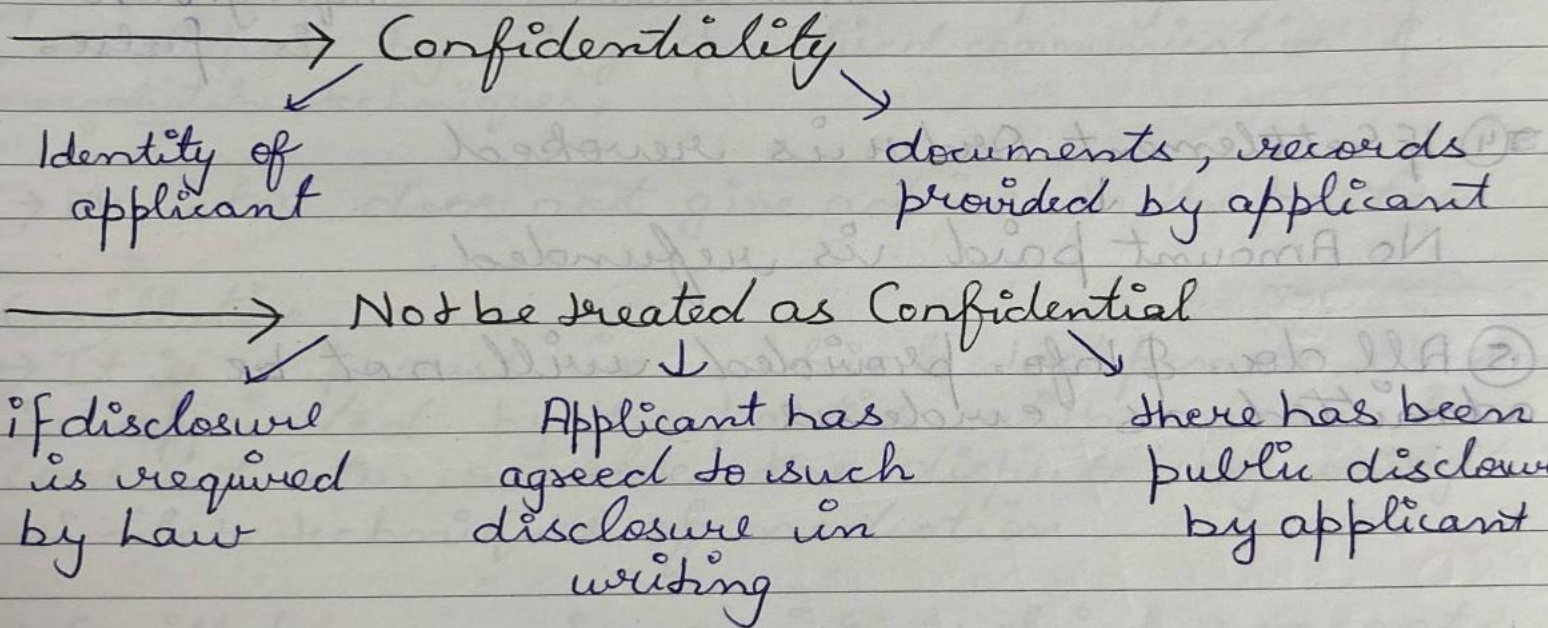 → Confidentiality
Identity of
applicant
documents, records
provided by applicant
→ Not be treated as Confidential
if disclosure
is required
by Law
Applicant has
agreed to such
disclosure in
writing
there has been
public disclosur
by applicant